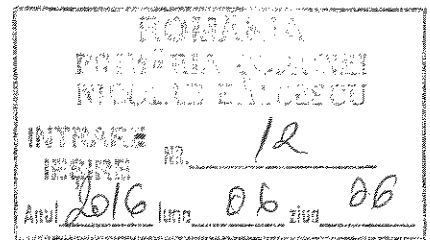 ROMÂNIA
PRIMĂRIA COMUNEI
NICOLAE BĂLCESCU
INTRARE
IEŞIRE NR. 12
Anul 2016 luna 06 ziua 06